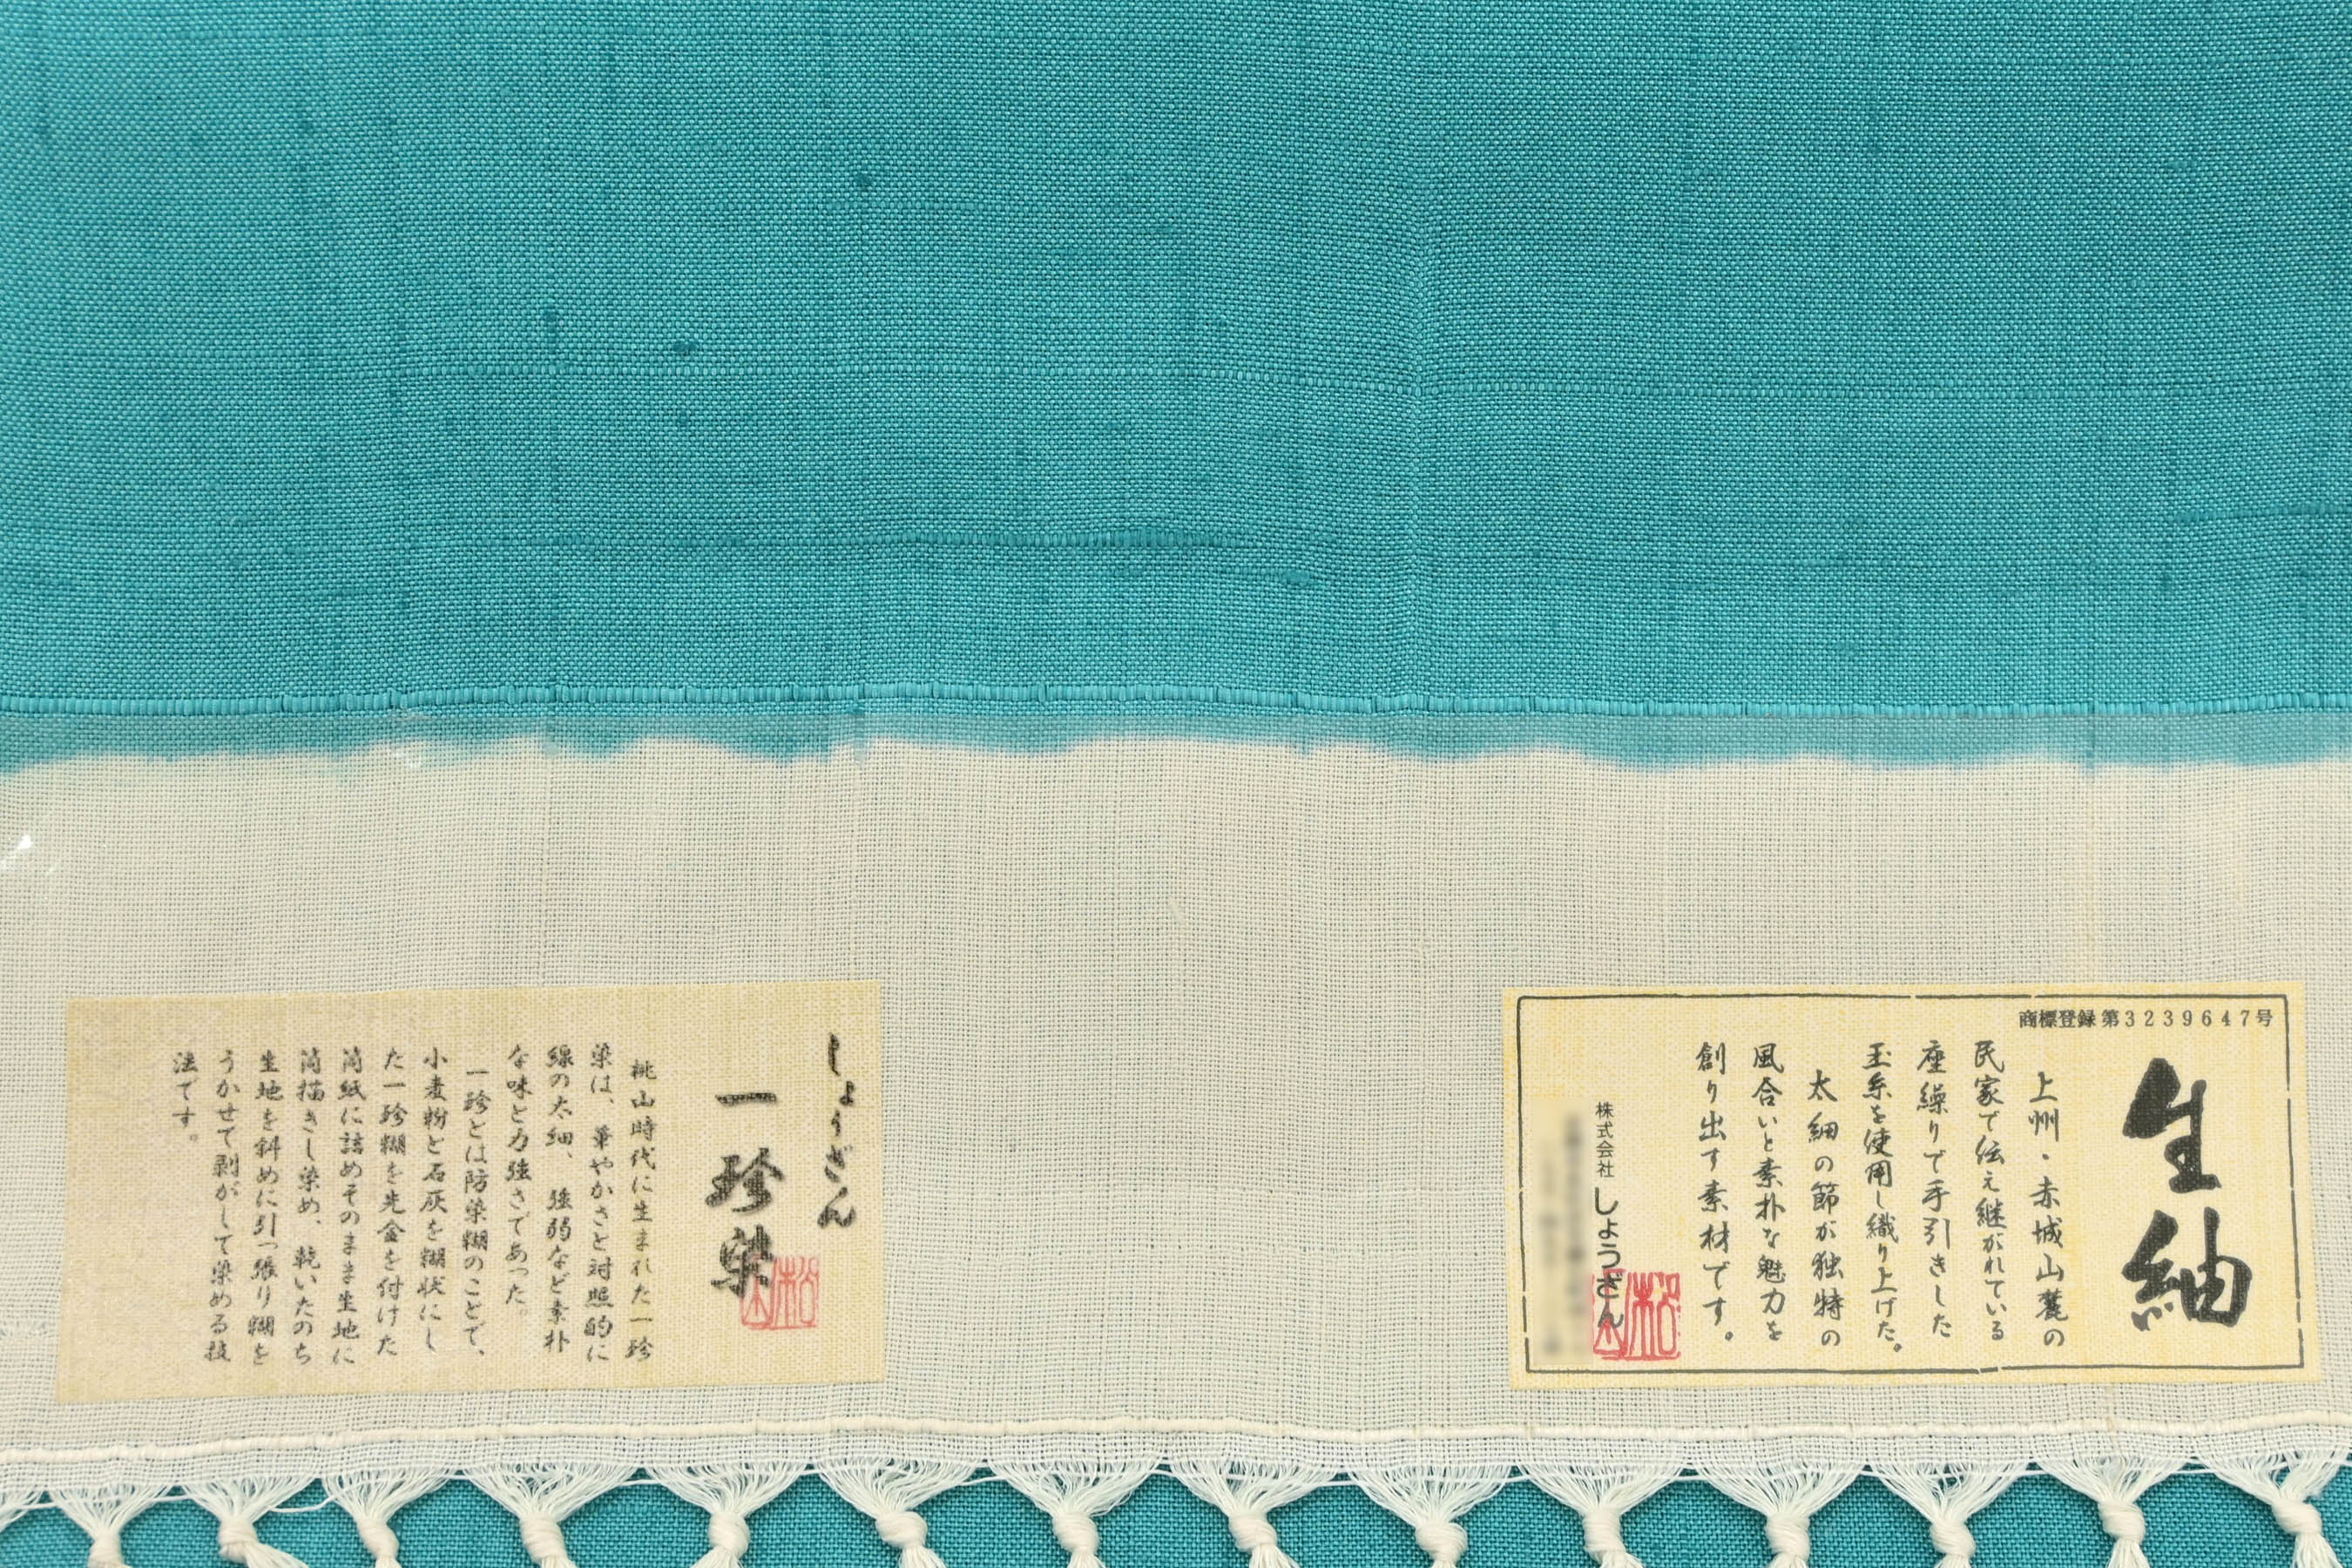 商標登録第3239647号
生紬
上州・赤城山麓の
民家で伝え継がれている
座繰りで手引きした
玉糸を使用し織り上げた。
太細の節が独特の
風合いと素朴な魅力を
創り出す素材です。
株式会社 しょうざん
しょうざん
一珍染
桃山時代に生まれた一珍
染は、華やかさと対照的に
線の太細、強弱など素朴
な味と力強さであった。
一珍とは防染糊のことで、
小麦粉と石灰を糊状にし
た一珍糊を先金を付けた
筒紙に詰めそのまま生地に
筒描きし染め、乾いたのち
生地を斜めに引っ張り糊を
うかせて剥がして染める技
法です。